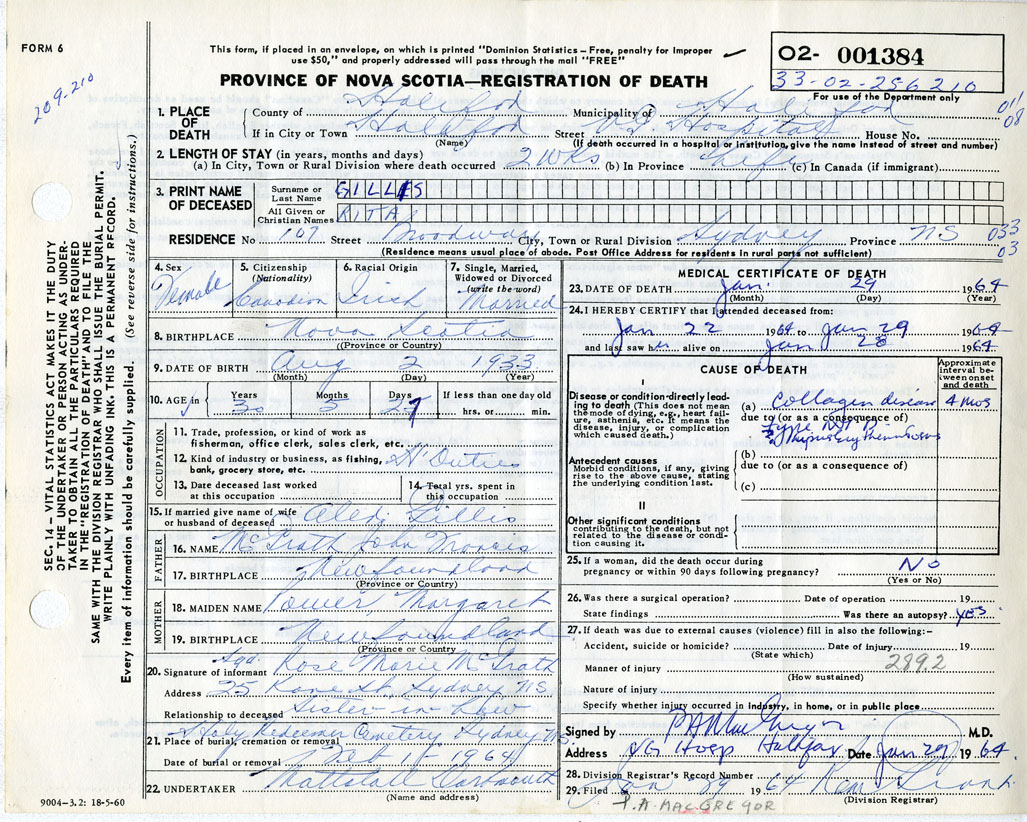 FORM 6
209-210
This form, if placed in an envelope, on which is printed "Dominion Statistics—Free, penalty for improper
use $50," and properly addressed will pass through the mail "FREE"
PROVINCE OF NOVA SCOTIA—REGISTRATION OF DEATH
O2- 001384
33-02-286210
For use of the Department only
011
08
1. PLACE OF DEATH
County of Halifax Municipality of Halifax
If in City or Town Halifax Street V.G. Hospital House No.
(Name) (If death occurred in a hospital or institution, give the name instead of street and number)
2. LENGTH OF STAY (in years, months and days)
(a) In City, Town or Rural Division where death occurred 2 wks (b) In Province Life (c) In Canada (if immigrant)
3. PRINT NAME OF DECEASED
Surname or Last Name GILLIS
All Given or Christian Names RITA
RESIDENCE No 107 Street Broadway City, Town or Rural Division Sydney Province NS
033
03
(Residence means usual place of abode. Post Office Address for residents in rural parts not sufficient)
SEC. 14 – VITAL STATISTICS ACT MAKES IT THE DUTY
OF THE UNDERTAKER OR PERSON ACTING AS UNDER-
TAKER TO OBTAIN ALL THE PARTICULARS REQUIRED
IN THE "REGISTRATION OF DEATH" AND TO FILE THE
SAME WITH THE DIVISION REGISTRAR WHO SHALL ISSUE THE BURIAL PERMIT.
WRITE PLAINLY WITH UNFADING INK. THIS IS A PERMANENT RECORD.
Every item of information should be carefully supplied. (See reverse side for instructions.)
4. Sex Female
5. Citizenship (Nationality) Canadian
6. Racial Origin Irish
7. Single, Married, Widowed or Divorced (write the word) Married
8. BIRTHPLACE Nova Scotia
(Province or Country)
9. DATE OF BIRTH Aug 2 1933
(Month) (Day) (Year)
10. AGE in Years 30 Months 5 Days 27 If less than one day old hrs. or min.
OCCUPATION
11. Trade, profession, or kind of work as
fisherman, office clerk, sales clerk, etc.
12. Kind of industry or business, as fishing,
bank, grocery store, etc. H'Duties
13. Date deceased last worked
at this occupation
14. Total yrs. spent in
this occupation
15. If married give name of wife
or husband of deceased Gillis
FATHER
16. NAME McGrath John Francis
17. BIRTHPLACE Newfoundland
(Province or Country)
MOTHER
18. MAIDEN NAME Power Margaret
19. BIRTHPLACE Newfoundland
(Province or Country)
20. Signature of informant Sgd. Rose Marie McGrath
Address 25 St. Sydney NS
Relationship to deceased Sister in Law
21. Place of burial, cremation or removal Holy Redeemer Cemetery Sydney NS
Date of burial or removal Feb 1 1964
22. UNDERTAKER Mattatall Dartmouth
(Name and address)
9004–3.2: 18-5-60
MEDICAL CERTIFICATE OF DEATH
23. DATE OF DEATH Jan. 29 1964
(Month) (Day) (Year)
24. I HEREBY CERTIFY that I attended deceased from:
Jan 22 1964 to Jan 29 1964
and last saw her alive on Jan 28 1964
CAUSE OF DEATH
Approximate interval between onset and death
I
Disease or condition directly lead-
ing to death (This does not mean
the mode of dying, e.g., heart fail-
ure, asthenia, etc. It means the
disease, injury, or complication
which caused death.)
(a) Collagen disease 4 mos
due to (or as a consequence of)
Type
Lupus Erythematosus
Antecedent causes
Morbid conditions, if any, giving
rise to the above cause, stating
the underlying condition last.
(b)
due to (or as a consequence of)
(c)
II
Other significant conditions
contributing to the death, but not
related to the disease or condi-
tion causing it.
25. If a woman, did the death occur during
pregnancy or within 90 days following pregnancy? No
(Yes or No)
26. Was there a surgical operation? Date of operation 19
State findings Was there an autopsy? yes
27. If death was due to external causes (violence) fill in also the following:–
Accident, suicide or homicide? Date of injury 19
(State which)
289.2
Manner of injury
(How sustained)
Nature of injury
Specify whether injury occurred in industry, in home, or in public place
Signed by P A MacGregor M.D.
Address VG Hosp Halifax Date Jan 29 1964
28. Division Registrar's Record Number
29. Filed Jan 29 1964
(Division Registrar)
P.A. MACGREGOR